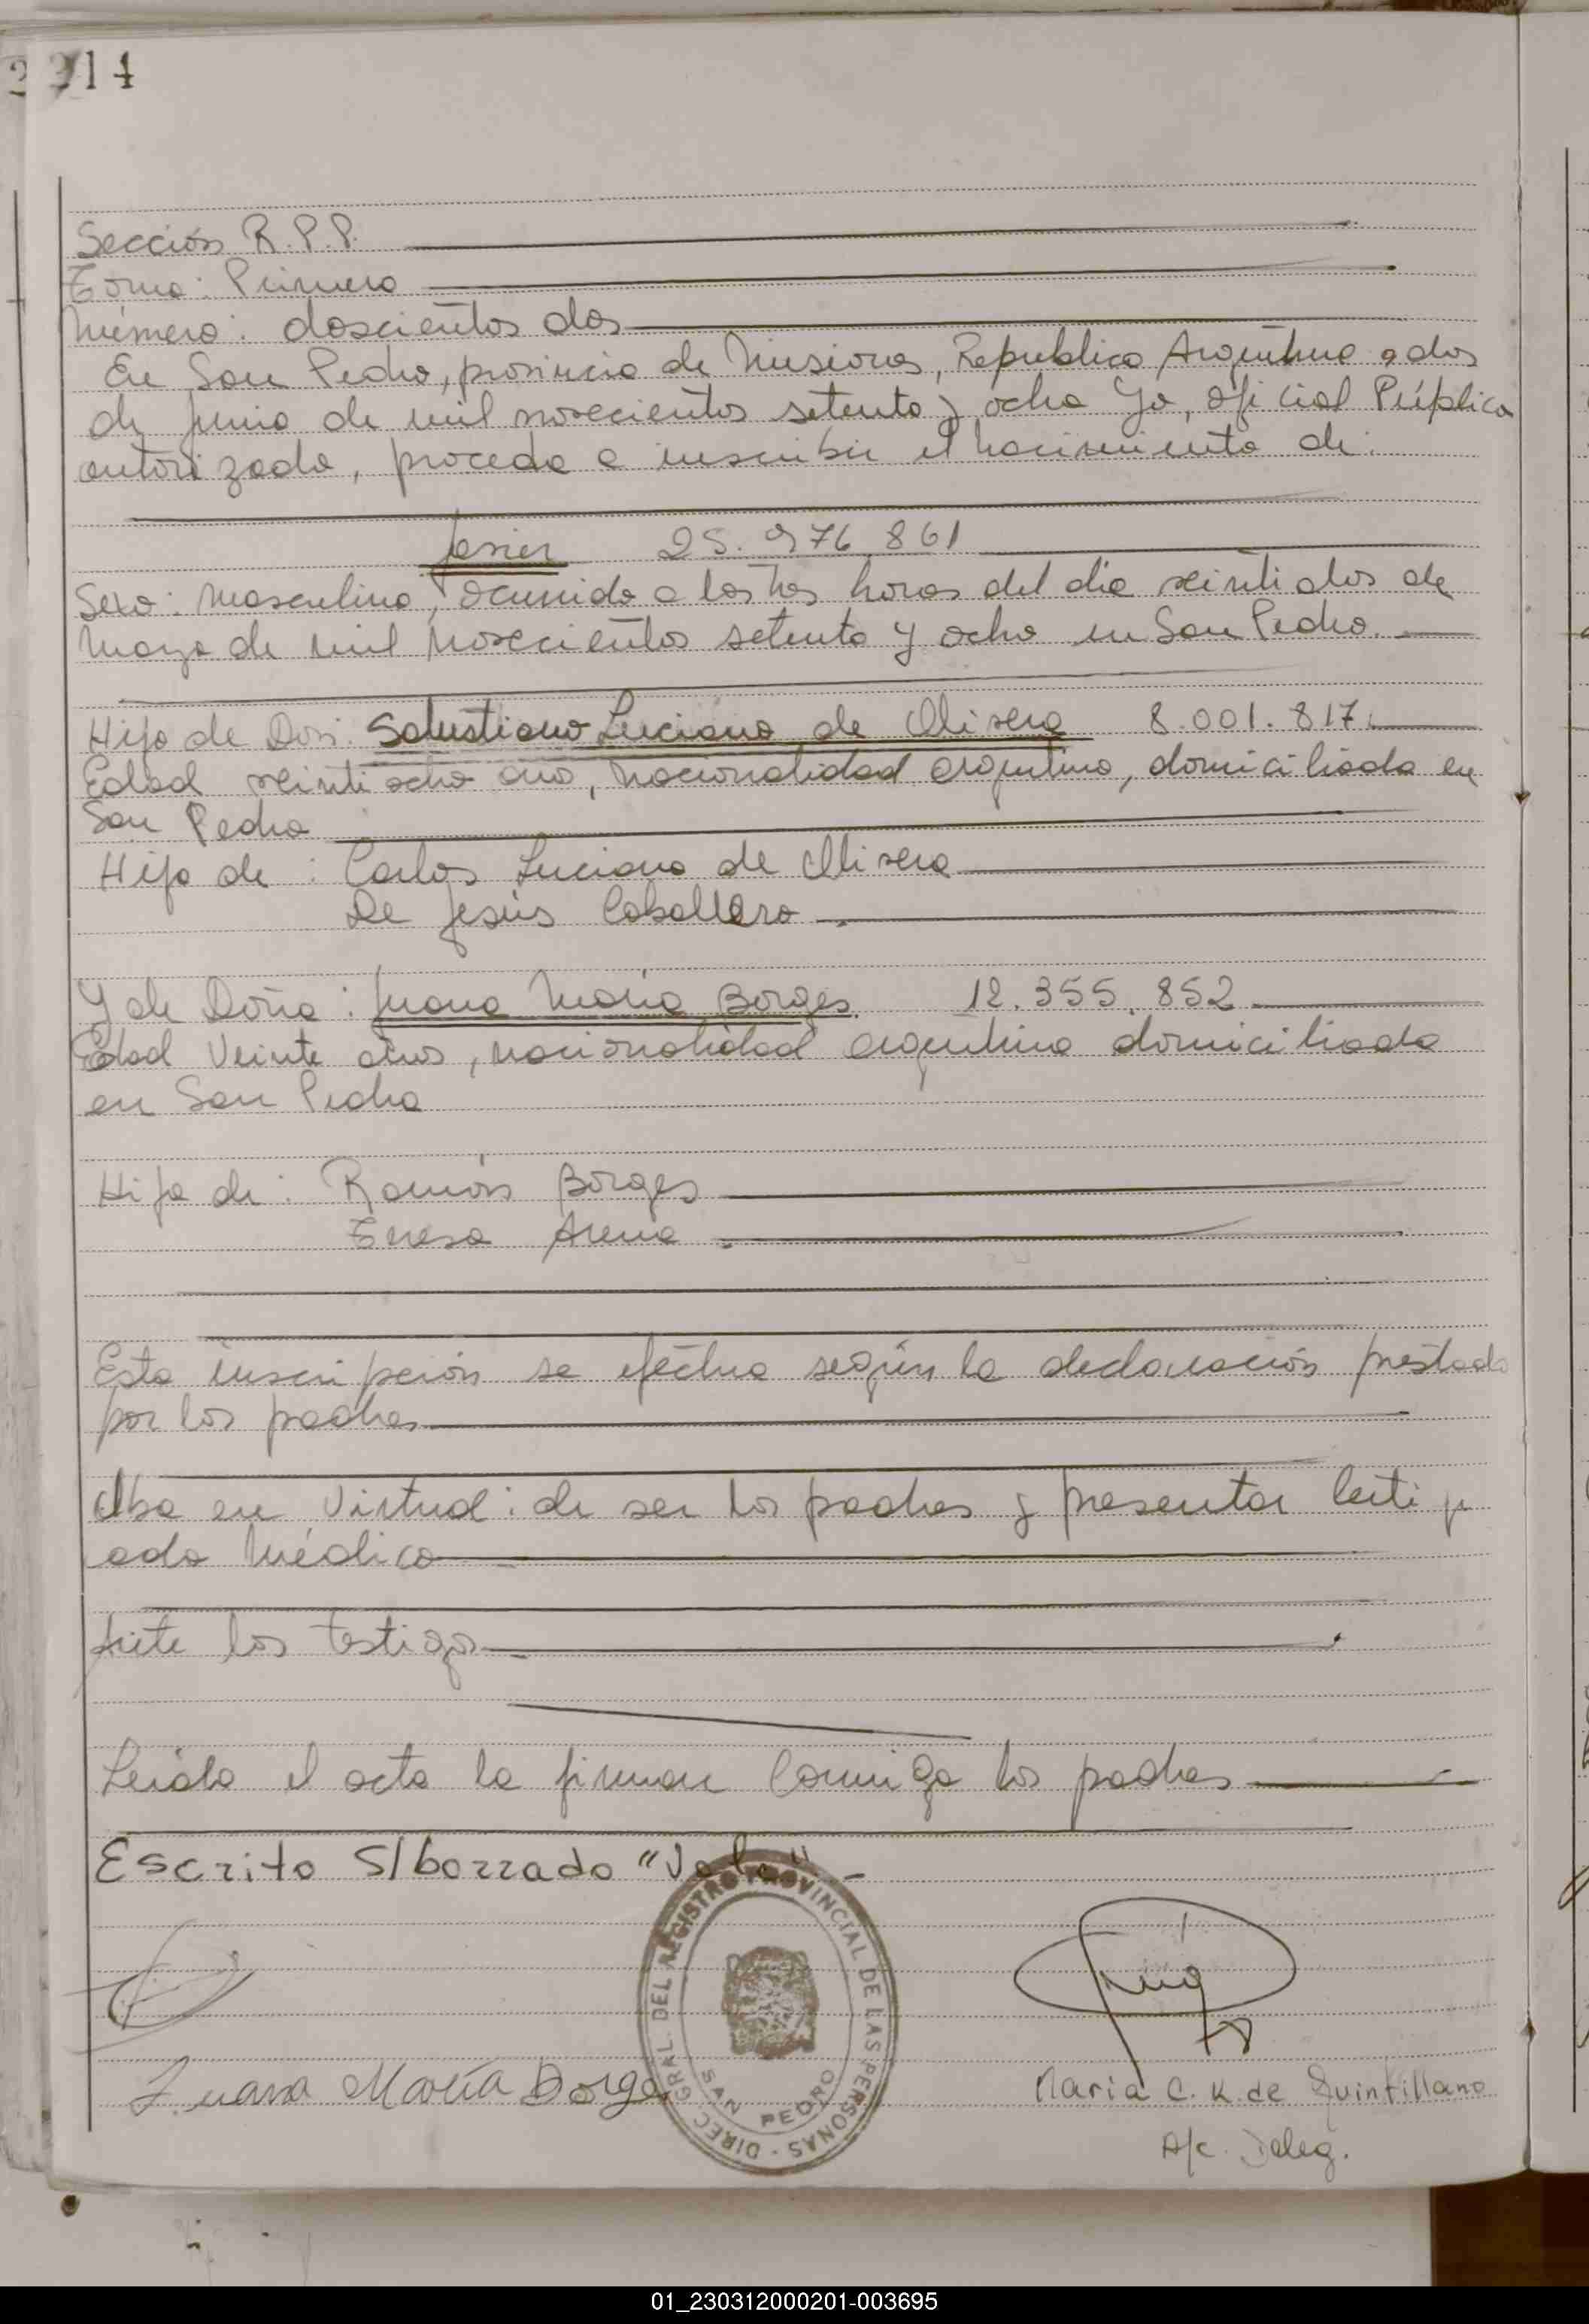 214
Sección R.P.P.
Tomo: Primero
Número: doscientos dos
En San Pedro, provincia de Misiones, Republica Argentina a dos
de Junio de mil novecientos setenta y ocho Yo, Oficial Público
autorizado, procedo a inscribir el nacimiento de:
Javier 25.976.861
Sexo: Masculino, ocurrido a las tres horas del día veintidos de
Marzo de mil novecientos setenta y ocho en San Pedro.
Hijo de Don: Salustiano Luciano de Olivera 8.001.817.
Edad veintiocho año, nacionalidad argentino, domiciliado en
San Pedro
Hijo de: Carlos Luciano de Olivera
De Jesús Caballero
Y de Doña: Juana María Borges. 12.355.852
Edad Veinte años, nacionalidad argentina domiciliada
en San Pedro
Hija de: Ramón Borges
Teresa Arena
Esta inscripción se efectua según la declaración prestada
por los padres
Obra en Virtud: de ser los padres y presentar Certifi
cado Médico
Ante los testigos
Leída el acta la firman Conmigo los padres
Escrito S/borrado "Vale"-
Juana María Borges
DIREC. GRAL. DEL REGISTRO PROVINCIAL DE LAS PERSONAS -
SAN PEDRO
Maria C. K. de Quintillano
A/c. Deleg.
01_230312000201-003695